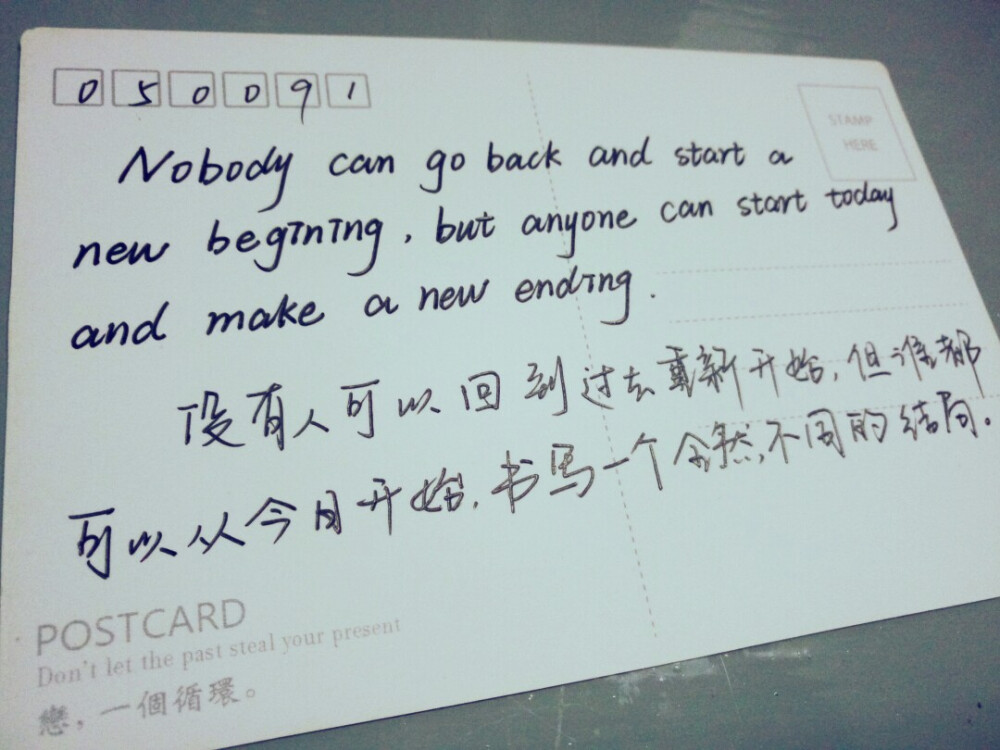 050091
STAMP
HERE
Nobody can go back and start a
new begining, but anyone can start today
and make a new ending.
没有人可以回到过去重新开始,但谁都
可以从今日开始,书写一个全然不同的结局。
POSTCARD
Don't let the past steal your present
戀,一個循環。